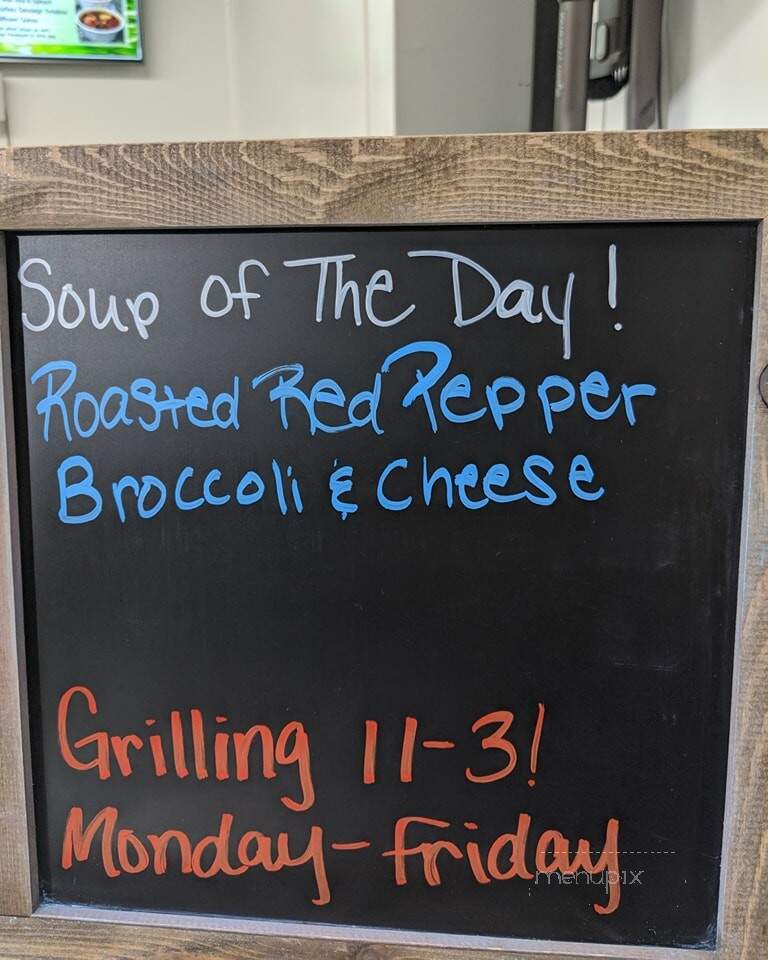 Soup of The Day!
Roasted Red Pepper
Broccoli & Cheese
Grilling 11-3!
Monday-Friday
menupix